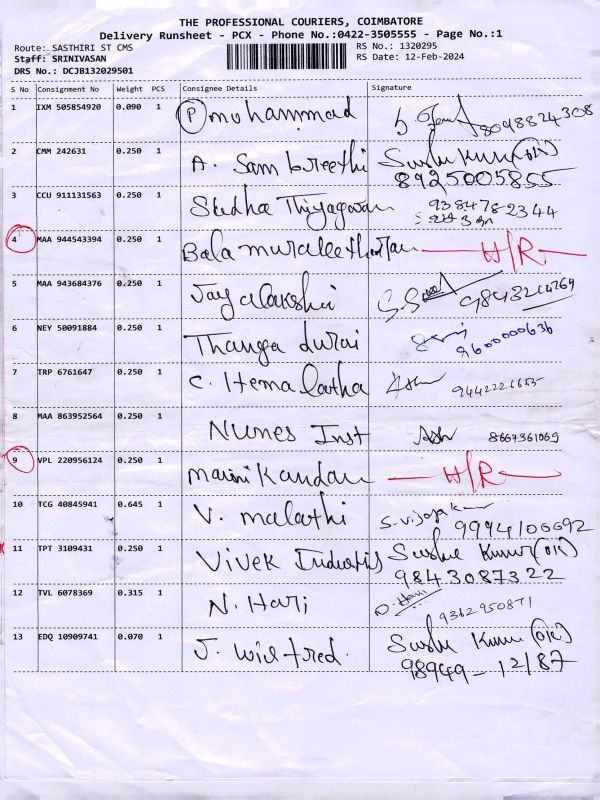 THE PROFESSIONAL COURIERS, COIMBATORE
Delivery Runsheet - PCX - Phone No.:0422-3505555 - Page No.:1
Route: SASTHIRI ST CMS RS No.: 1320295
Staff: SRINIVASAN RS Date: 12-Feb-2024
DRS No.: DCJB132029501
S No Consignment No Weight PCS Consignee Details Signature
1 IXM 505854920 0.090 1 P mohammad 8098824308
2 CMM 242631 0.250 1 A. Sambreethi
8925005855
3 CCU 911131563 0.250 1 Sudha Thiyagaran 9384782344
4 MAA 944543394 0.250 1 Bala muraleetharan H/R
5 MAA 943684376 0.250 1 Jayalakshi
6 NEY 50091884 0.250 1 Thanga durai 9600000636
7 TRP 6761647 0.250 1 C. Hemalatha
8 MAA 863952564 0.250 1 Nunes Inst 8667361069
9 VPL 220956124 0.250 1 Kandan H/R
10 TCG 40845941 0.645 1 V. malathi
11 TPT 3109431 0.250 1 Vivek
9843087322
12 TVL 6078369 0.315 1 N. Hari 9362950871
13 EDQ 10909741 0.070 1 J. wilfred.
98949-12187